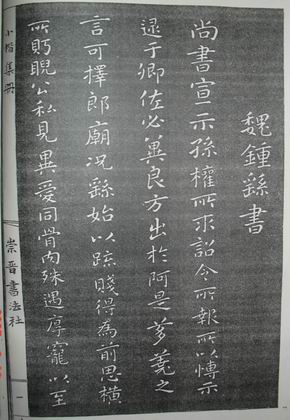 魏鍾繇書
尚書宣示孫權所求詔令所報所以博示
逮于卿佐必冀良方出於阿是芻蕘之
言可擇郎廟況繇始以疏賤得為前恩橫
所眄睨公私見異愛同骨肉殊遇厚寵以至
小楷集冊
崇晉書法社
一